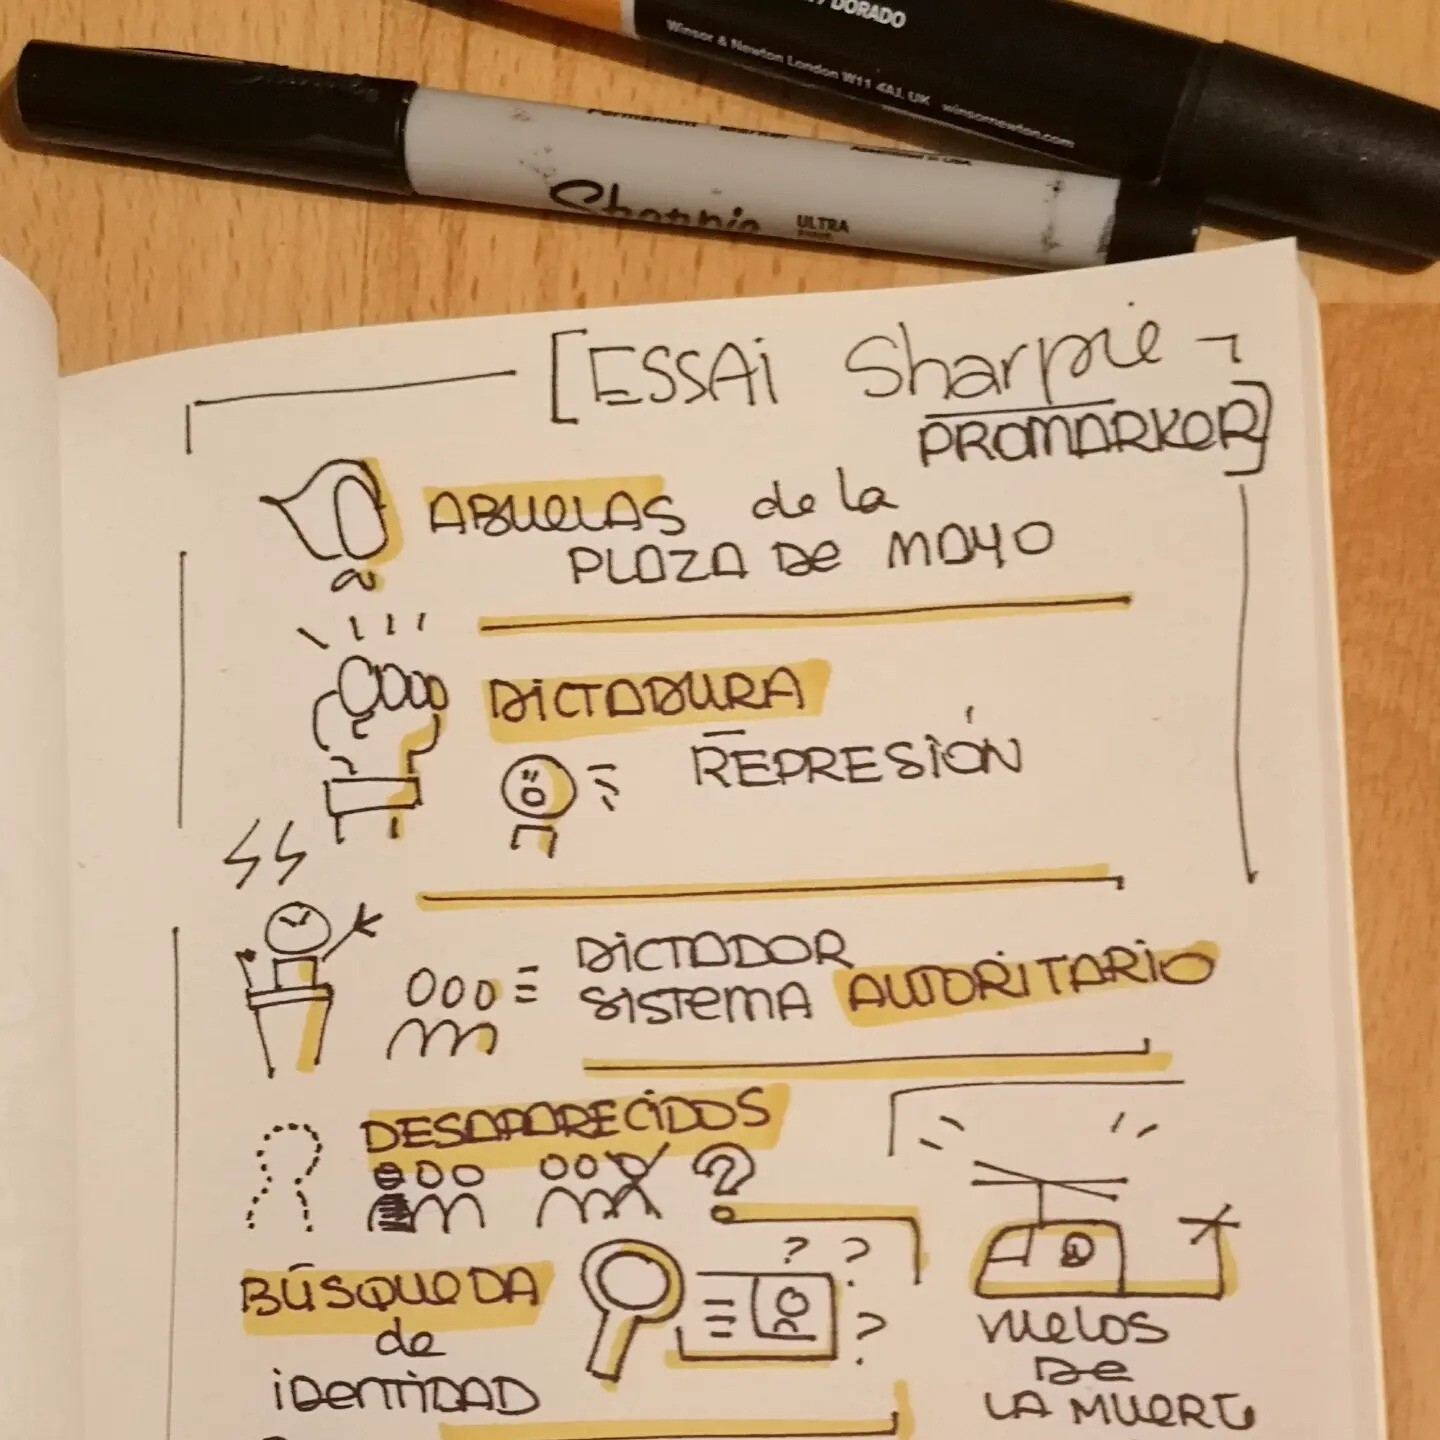 DORADO
Winsor & Newton London W11 4AJ, UK winsornewton.com
Permanent Marker
Assembled in USA
Sharpie ULTRA
[ESSAi Sharpie
PROMARKER]
ABUELAS de la
PLAZA DE MAYO
DICTADURA
REPRESIÓN
DICTADOR
SISTEMA AUTORITARIO
DESAPARECIDOS
?
? ?
?
BÚSQUEDA
de
iDENTIDAD
VUELOS
DE
LA MUERTE